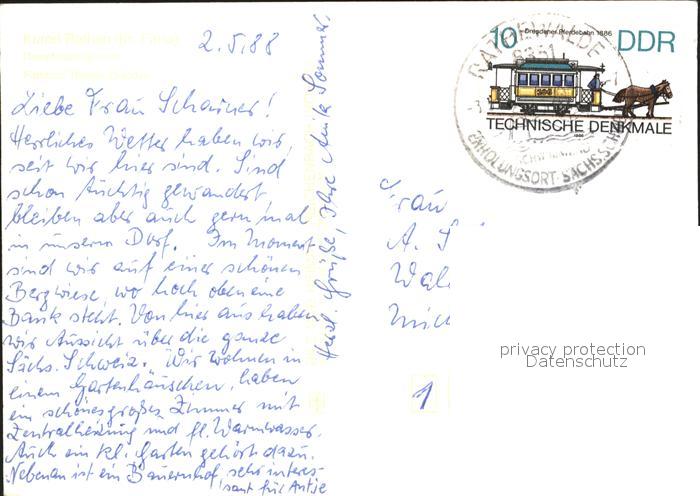 2.5.88
Liebe Frau Schariner!
Herrliches Wetter haben wir,
seit wir hier sind. Sind
schon tüchtig gewandert
bleiben aber auch gern mal
in unserm Dorf. Im Moment
sind wir auf einer schönen
Bergwiese, wo hoch oben eine
Bank steht. Von hier aus haben
wir Aussicht über die ganze
Sächs. Schweiz. Wir wohnen in
einem Gartenhäuschen, haben
ein schönes großes Zimmer mit
Zentralheizung und fl. Warmwasser.
Auch ein kl. Garten gehört dazu.
Nebenan ist ein Bauernhof, sehr interes-
sant für Antje
Herzl. Grüße, Ihre Anita Sommer.
10
Dresdener Pferdebahn 1886
DDR
TECHNISCHE DENKMALE
1986
RATHEWALDE
8351
ERHOLUNGSORT SÄCHS. SCH
Frau
A. S
Wal
1
privacy protection
Datenschutz